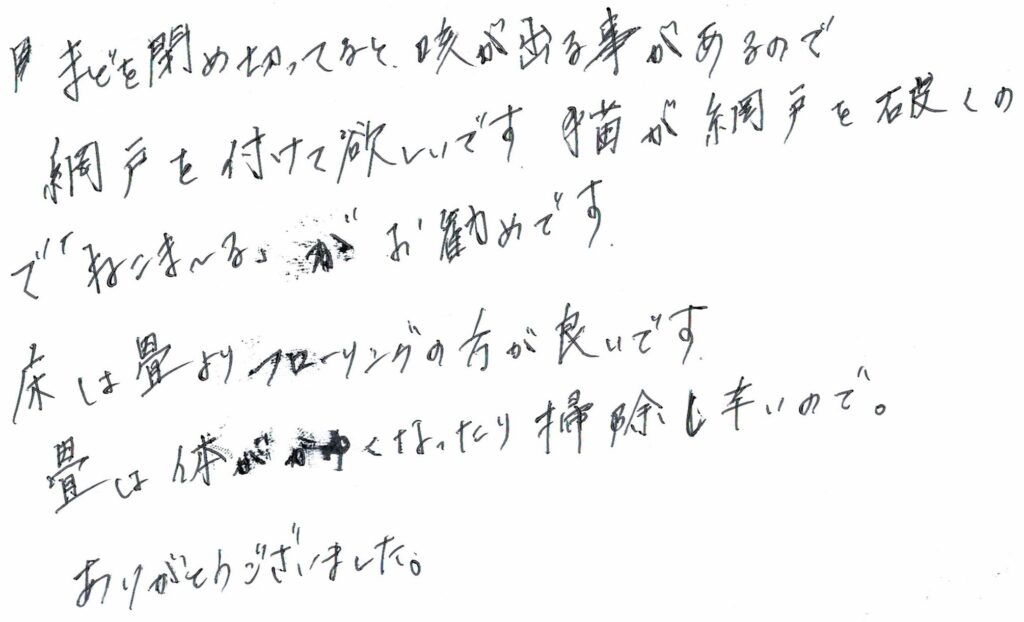 まどを閉め切ってると、咳が出る事があるので
網戸を付けて欲しいです。猫が網戸を破くの
で「ねこま～る」がお勧めです。
床は畳よりフローリングの方が良いです。
畳は体がくなったり掃除し辛いので。
ありがとうございました。